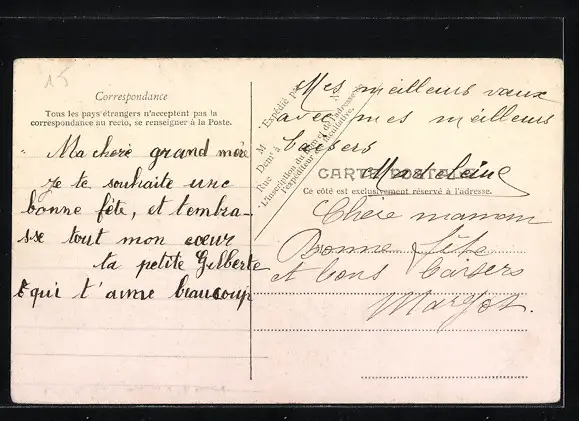 15
Correspondance
Tous les pays étrangers n'acceptent pas la
correspondance au recto, se renseigner à la Poste.
" Ma cheré grand mère
Je te souhaite une
bonne fête, et t'embra-
sse tout mon coeur
ta petite Gilberte
qui t'aime beaucoup
M Expédié par
Demt à
Rue N
L'inscription du nom et de l'adresse de
l'expéditeur est facultative.
Mes meilleurs vœux
avec mes meilleurs
baisers
CARTE POSTALE
Madeleine
Ce côté est exclusivement réservé à l'adresse.
Chère maman
Bonne fête
et bons baisers
Margot.